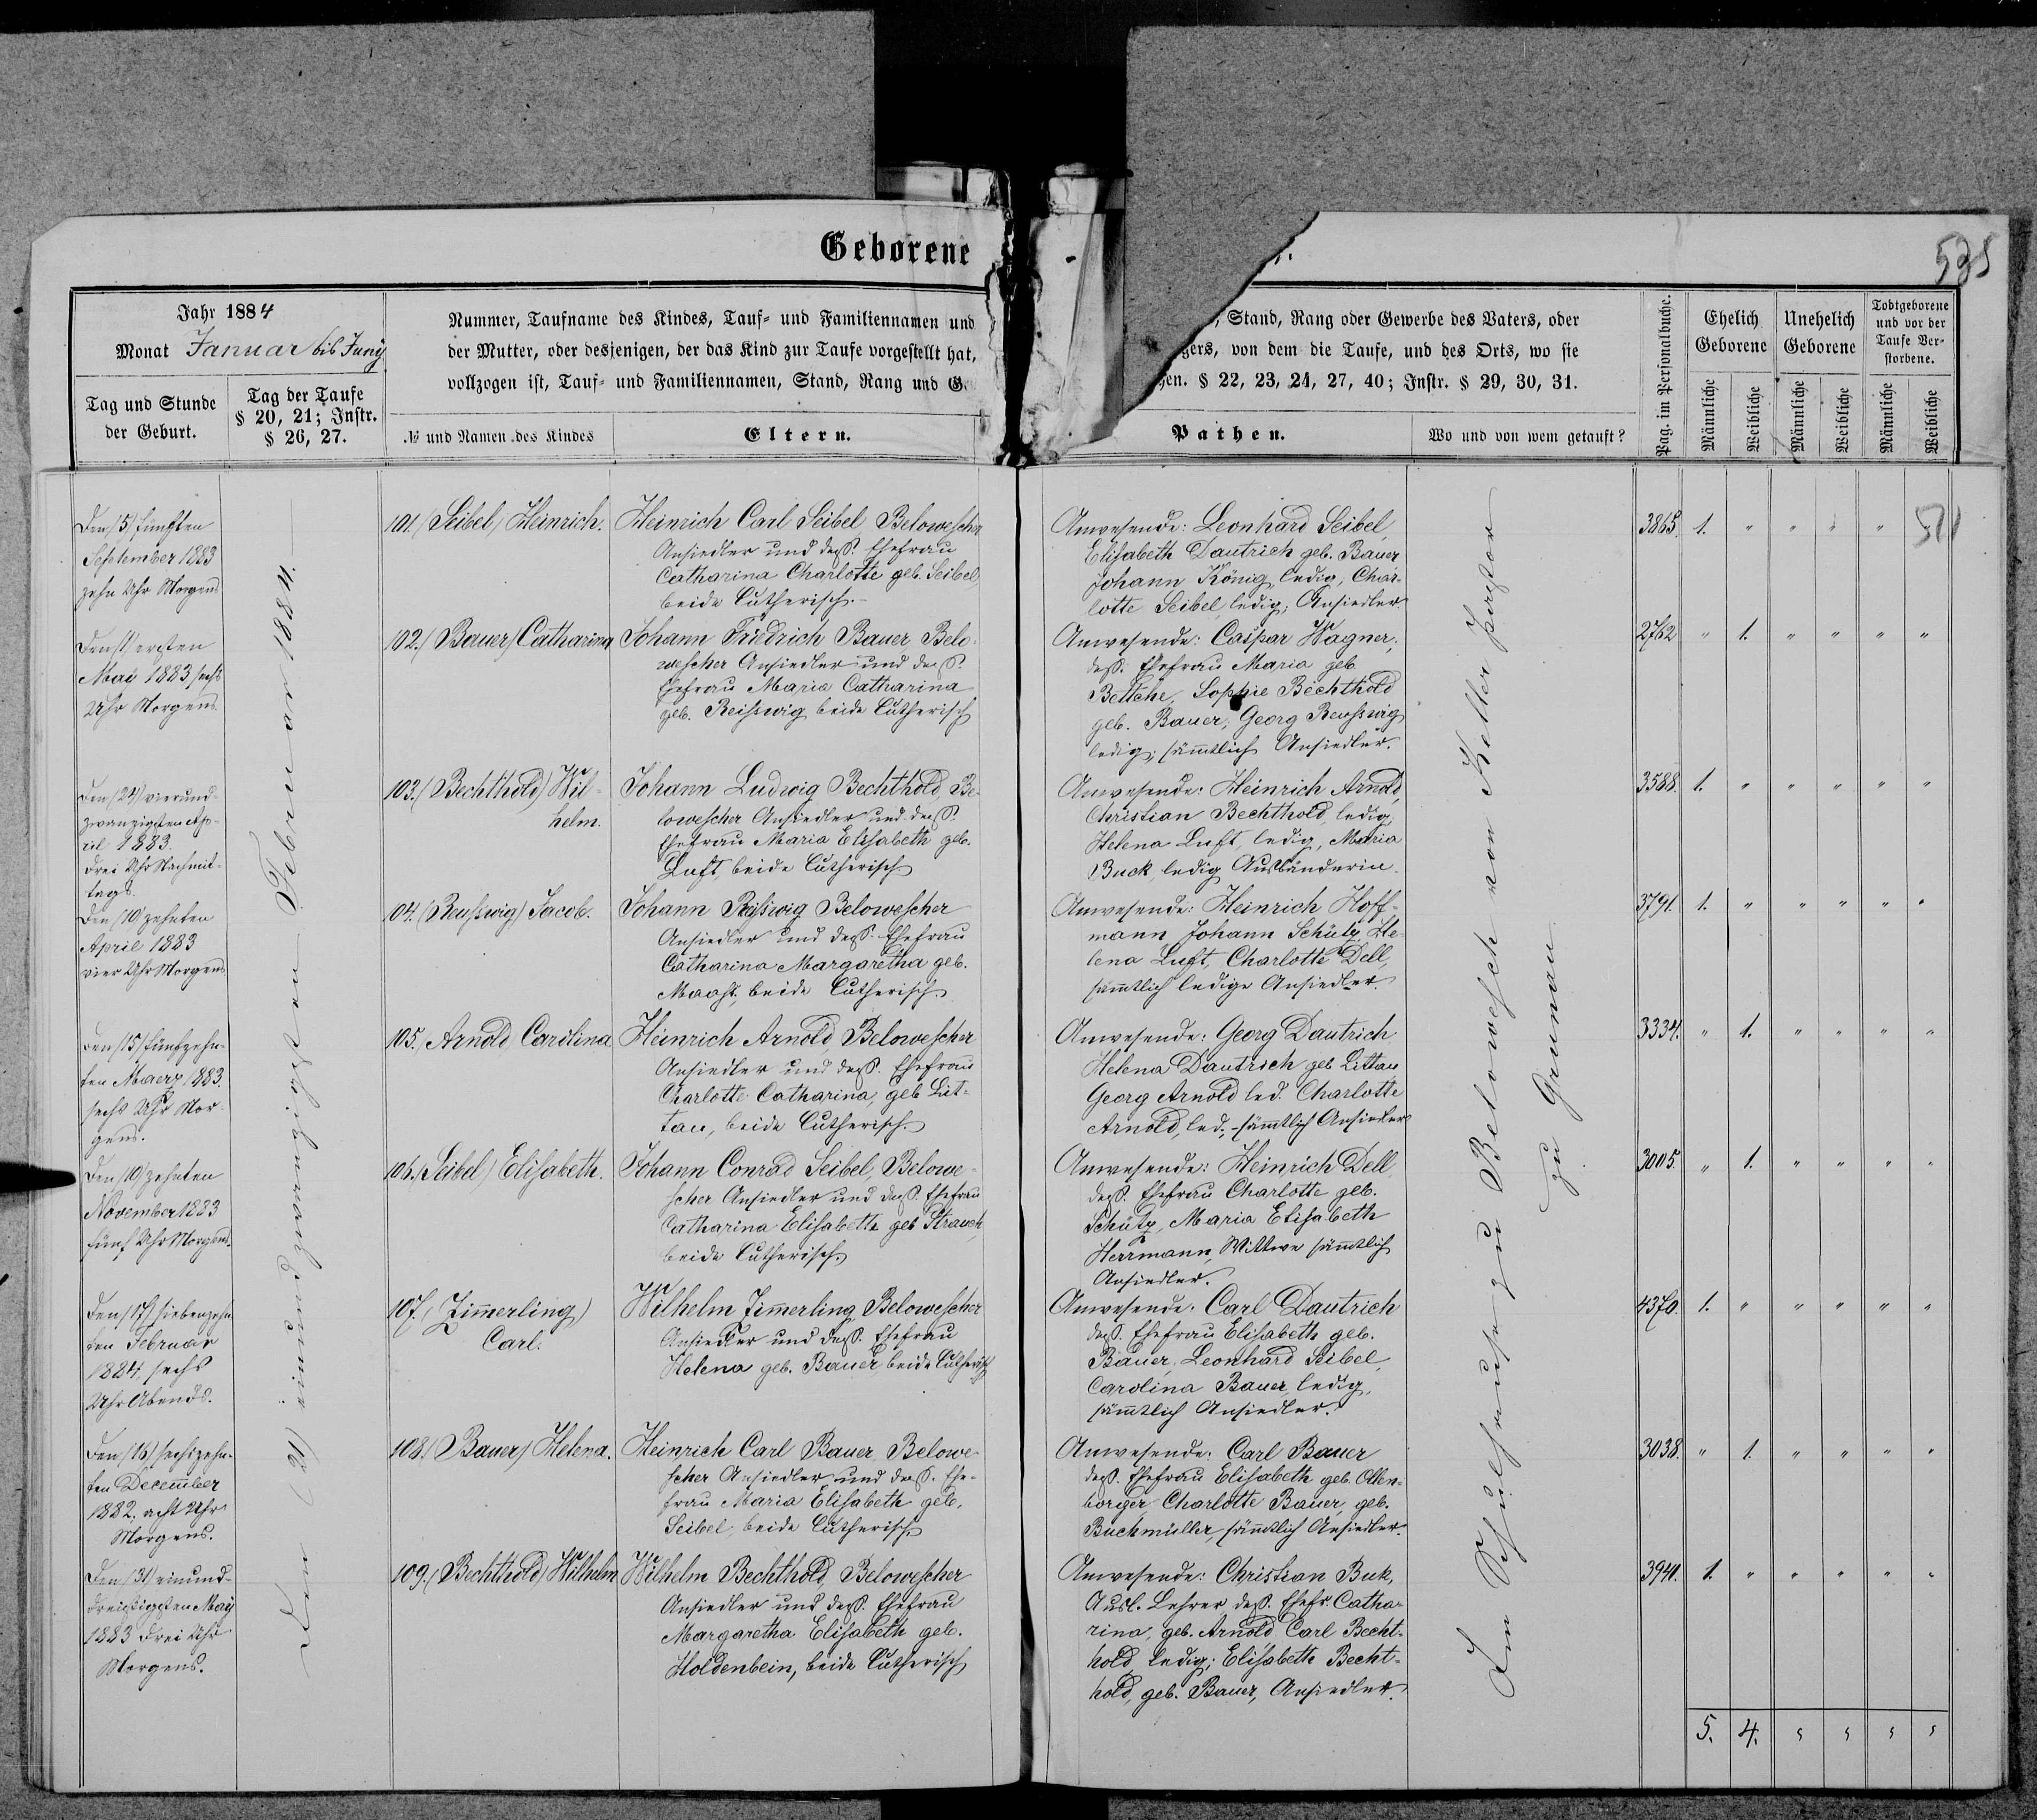 Geborene
535
Jahr 1884
Monat Januar bis Juny
Tag und Stunde
der Geburt.
Tag der Taufe
§ 20, 21; Instr.
§ 26, 27.
Nummer, Taufname des Kindes, Tauf- und Familiennamen und
der Mutter, oder desjenigen, der das Kind zur Taufe vorgestellt hat,
vollzogen ist, Tauf- und Familiennamen, Stand, Rang und G
№ und Namen des Kindes
Eltern.
Stand, Rang oder Gewerbe des Vaters, oder
gers, von dem die Taufe, und des Orts, wo sie
hen. § 22, 23, 24, 27, 40; Instr. § 29, 30, 31.
Pathen.
Wo und von wem getauft?
Pag. im Personalbuche.
Ehelich
Geborene
Unehelich
Geborene
Todtgeborene
und vor der
Taufe Ver-
storbene.
Männliche
Weibliche
Männliche
Weibliche
Männliche
Weibliche
Den (21) einundzwanzigsten Februar 1884.
Den (5) fünften
September 1883
zehn Uhr Morgens
101. (Seibel) Heinrich.
Heinrich Carl Seibel Belowescher
Ansiedler und dess. Ehefrau
Catharina Charlotte geb. Seibel,
beide Lutherisch.
Anwesende: Leonhard Seibel,
Elisabeth Dautrich geb. Bauer
Johann König, ledig, Char-
lotte Seibel, ledig; Ansiedler.
3865. 1. " " " "
511
Den (1) ersten
May 1883 sechs
Uhr Morgens.
102. (Bauer) Catharina
Johann Friedrich Bauer, Belo-
wescher Ansiedler und dess.
Ehefrau Maria Catharina
geb. Reisswig beide Lutherisch
Anwesende: Caspar Wagner,
dess. Ehefrau Maria geb.
Bettcher, Sophie Bechthold
geb. Bauer, Georg Reusswig
ledig; sämmtlich Ansiedler.
2762 " 1. " " " "
Den (24) vierund-
zwanzigsten Ap-
ril 1883.
drei Uhr Nachmit-
tags.
103. (Bechthold) Wil-
helm.
Johann Ludwig Bechthold, Be-
lowescher Ansiedler und dess.
Ehefrau Maria Elisabeth geb.
Luft, beide Lutherisch
Anwesende: Heinrich Arnold,
Christian Bechthold, ledig,
Helena Luft, ledig, Maria
Buck, ledig Ausländerin.
3588. 1. " " " " "
Den (10) zehnten
April 1883
vier Uhr Morgens
04. (Reusswig) Jacob.
Johann Reisswig Belowescher
Ansiedler und dess. Ehefrau
Catharina Margaretha geb.
beide Lutherisch.
Anwesende: Heinrich Hoff-
mann, Johann Schütz, He-
lena Luft, Charlotte Dell,
sämmtlich ledige Ansiedler.
3791. 1. " " " " "
Den (15) fünfzehn-
ten Maerz 1883.
sechs Uhr Mor-
gens.
105. Arnold Carolina
Heinrich Arnold, Belowescher
Ansiedler und dess. Ehefrau
Charlotte Catharina, geb Lit-
tau, beide Lutherisch.
Anwesende: Georg Dautrich
Helena Dautrich geb Littau,
Georg Arnold led. Charlotte
Arnold, led. sämtlich Ansiedler
3334. " 1. " " " "
Den (10) zehnten
November 1883
fünf Uhr Morgens.
106. (Seibel) Elisabeth.
Johann Conrad Seibel, Belowe-
scher Ansiedler und dess. Ehefrau
Catharina Elisabeth geb Strauch,
beide Lutherisch.
Anwesende: Heinrich Dell
dess. Ehefrau Charlotte geb.
Schütz, Maria Elisabeth
Herrmann, Wittwe sämmtlich
Ansiedler.
3005. " 1. " " " "
Den (17) siebenzehn-
ten Februar
1884. sechs
Uhr Abends.
107. (Zimerling)
Carl.
Wilhelm Zimerling Belowescher
Ansiedler und dess. Ehefrau
Helena geb. Bauer, beide Lutherisch
Anwesende: Carl Dautrich
dess. Ehefrau Elisabeth geb.
Bauer, Leonhard Seibel,
Carolina Bauer, ledig,
sämmtlich Ansiedler.
4370. 1. " " " " "
Den (16) sechszehn-
ten December
1882. acht Uhr
Morgens.
108. (Bauer) Helena.
Heinrich Carl Bauer, Belowe-
scher Ansiedler und dess. Ehe-
frau Maria Elisabeth geb.
Seibel, beide Lutherisch
Anwesende: Carl Bauer
dess. Ehefrau Elisabeth geb. Ollen-
borger Charlotte Bauer, geb.
Buchmüller, sämmtlich Ansiedler.
3038. " 1. " " " "
Den (31) einund-
dreissigsten May
1883 drei Uhr
Morgens.
109. (Bechthold) Wilhelm
Wilhelm Bechthold, Belowescher
Ansiedler und dess. Ehefrau
Margaretha Elisabeth geb.
Holdenbein, beide Lutherisch
Anwesende: Christian Buk,
Ausl. Lehrer dess. Ehefr. Catha-
rina, geb. Arnold Carl Becht-
hold, ledig; Elisabeth Becht-
hold, geb. Bauer, Ansiedler.
3941. 1. " " " " "
Im Schulhause zu Belowesch von Keller Pastor
zu Grunau
5. 4. " " " "